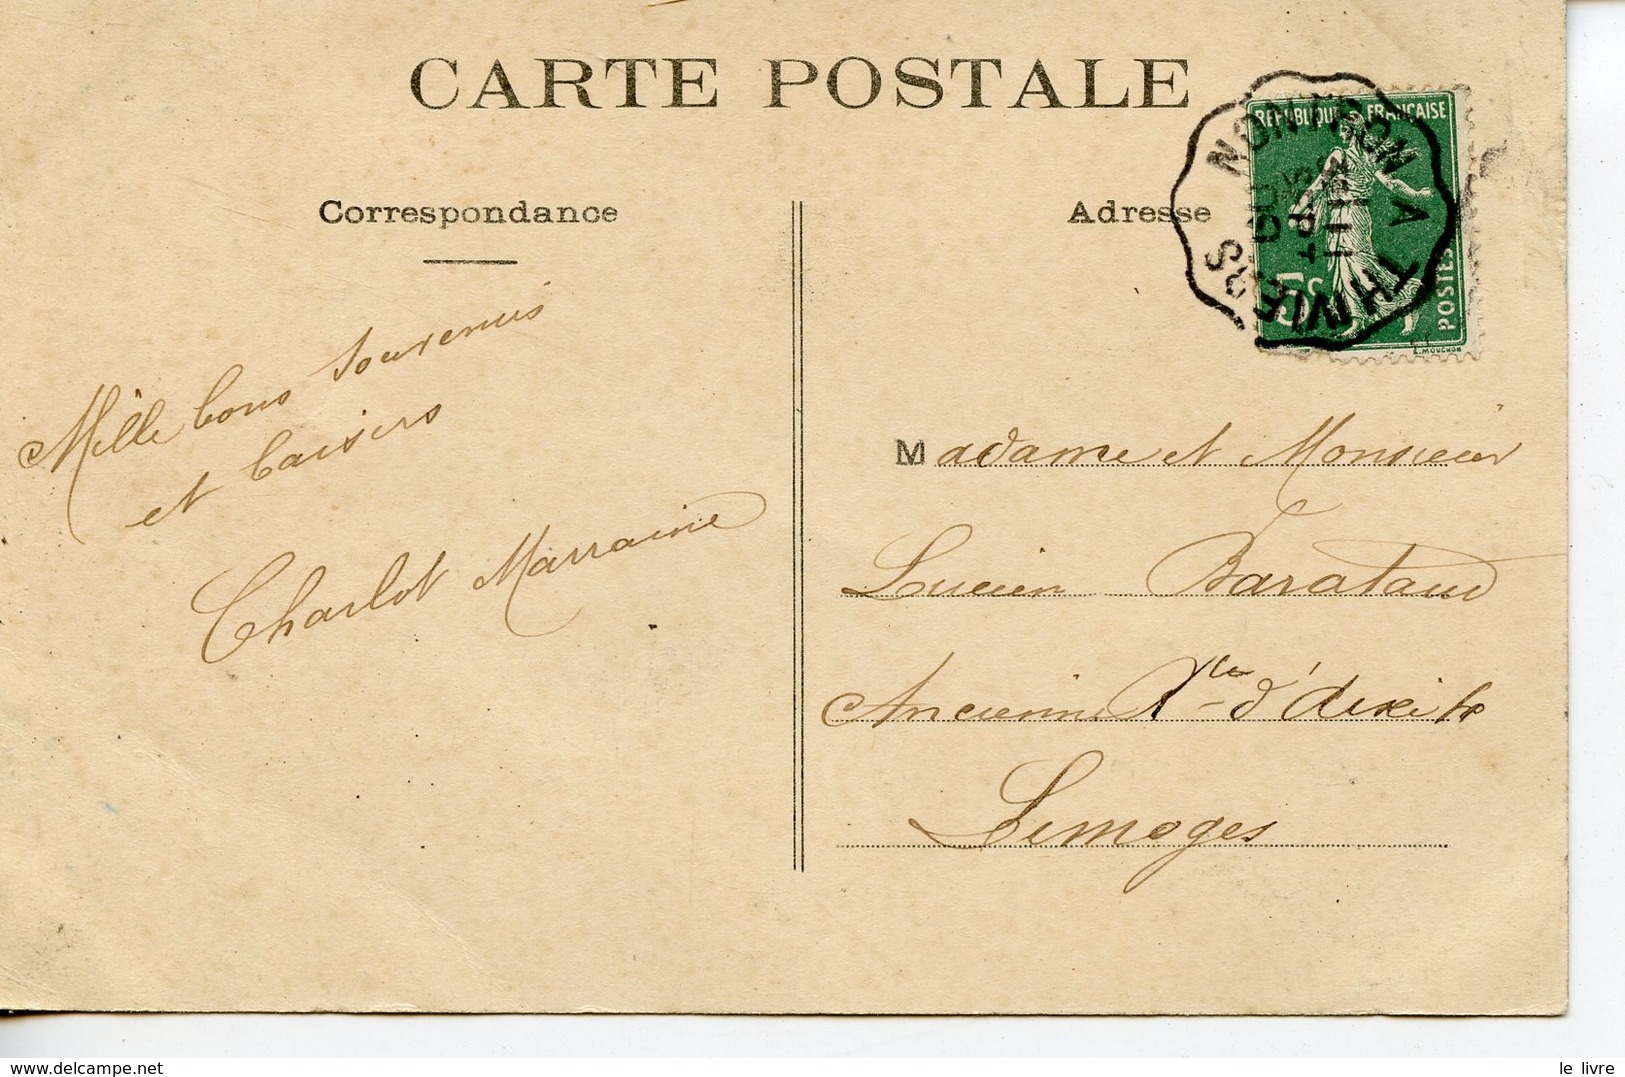 CARTE POSTALE
Correspondance
Adresse
REPUBLIQUE FRANÇAISE
POSTES
5c
E. MOUCHON
NONTRON A THIVIERS
SEPT
Mille bons souvenirs
et baisers
Charlot Marraine
Madame et Monsieur
Lucien Barataud
Ancienne Rte d'Aixe
Limoges
le livre